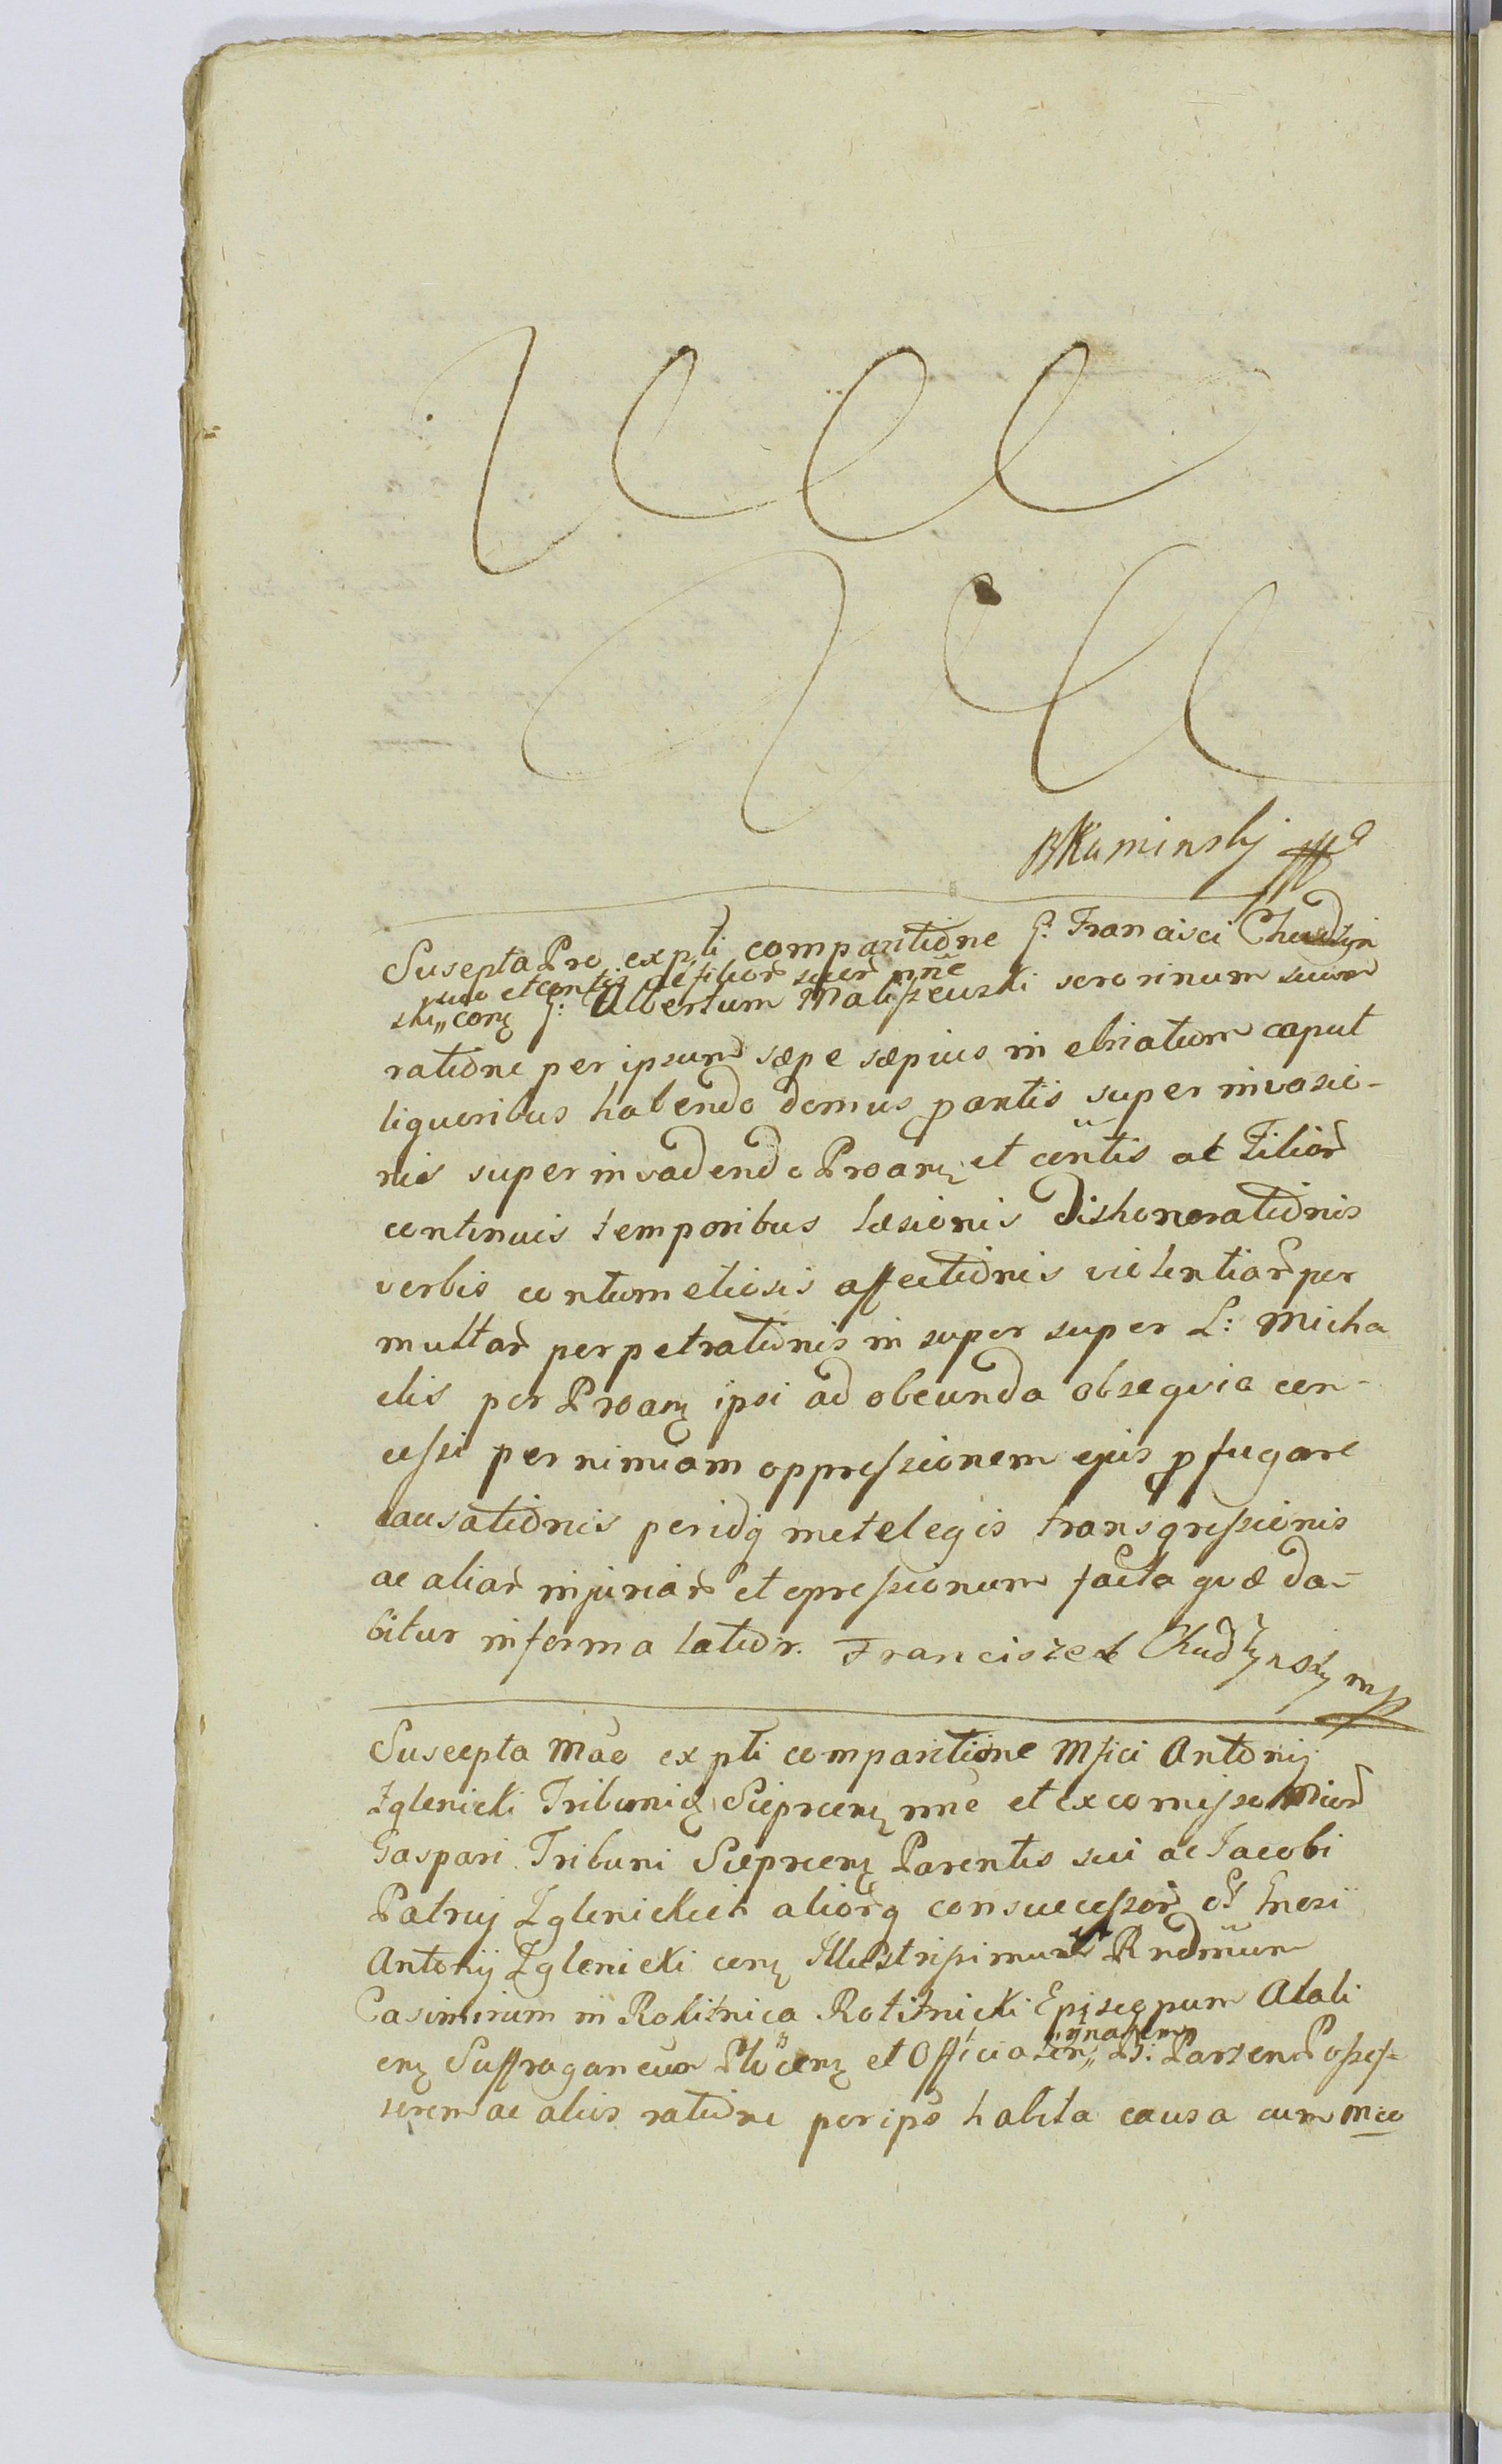 BKaminsky mp
Suscepta Pro ex pti comparitione G: Francisci Chudzyn
suo et contis ac filior suor nne
ski,, conq G: Albertum Maliszewski sororinum suum
ratione per ipsum sæpe sæpius in ebriatum caput
liquoribus habendo domus p̱antis super invasio-
nis super invadendo Proanq et contis at Filior
continuis temporibus læsionis dishonorationis
verbis contumeliosis affectionis violentiar per
multar perpetrationis in super super L: Micha
elis per Proanq ipsi ad obeunda obsequia con-
cessi per nimiam oppressionem ejus p̱fugare
causationis peridq metelegis transgressionis
ac aliar injuriar et opressionum facta quæ da-
bitur in forma latior. Franciszek Chudzynsky mp
Suscepta Mao ex pti comparitione Mfici Antonij
Zglenicki Tribunid Sieprcenq nne et ex comisso Micor
Gaspari Tribuni Sieprcenq Parentis sui ac Jacobi
Patruij Zglenickich aliorq consuccessor et Gnosi
Antonij Zglenicki conq Illustrissimum Rndmum
Casimirum in Rokitnica Rokitnicki Episcopum Atali
enq Suffraganeum Plocenq et Officialem,, Parzen Posses-
sorem ac alios ratione per ipso habita causa cum Mco